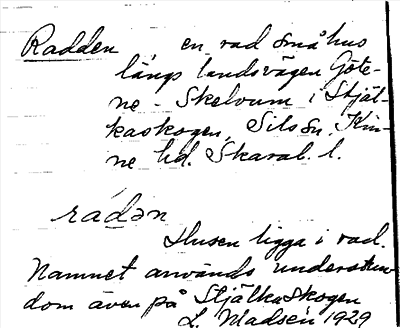 Radden en rad små hus
längs landsvägen Göte-
ne - Skelvum i Stjäl-
kaskogen, Sils sn. Kin-
ne hd. Skarab. l.
rádən
Husen ligga i rad.
Namnet används understun-
dom även på Stjälkaskogen
L. Madsén 1929